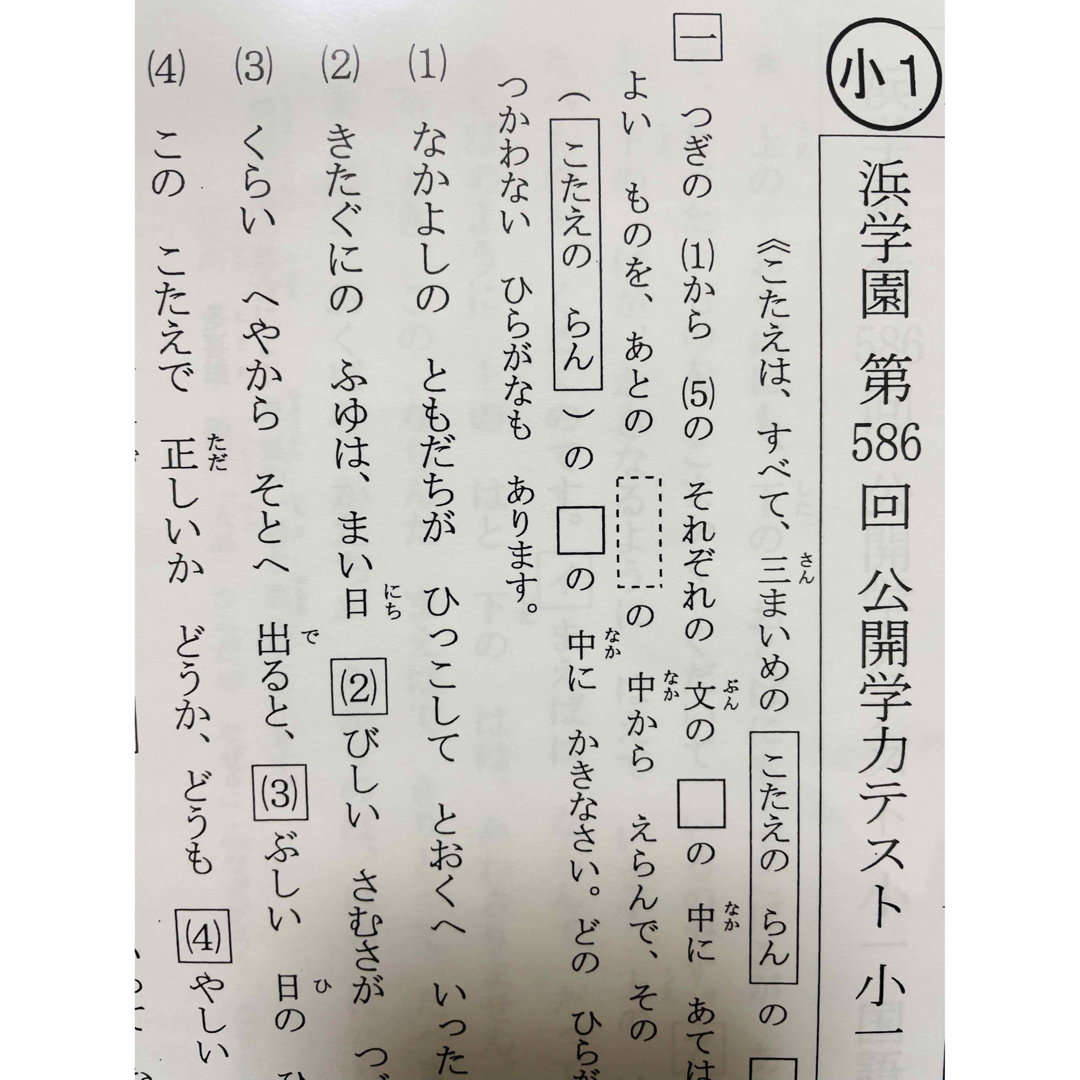 小1
浜学園 第586回 公開学力テスト 小一
《こたえは、すべて、三まいめの こたえの らん の
一 つぎの (1)から (5)の それぞれの 文の □の 中に あては
よい ものを、あとの の 中から えらんで、その
(こたえの らん)の □の 中に かきなさい。どの ひらが
つかわない ひらがなも あります。
(1) なかよしの ともだちが ひっこして とおくへ いった
(2) きたぐにの ふゆは、まい日 (2)びしい さむさが つづ
(3) くらい へやから そとへ 出ると、(3)ぶしい 日の ひ
(4) この こたえで 正しいか どうか、どうも (4)やしい
さん
ぶん
なか
なか
なか
にち
で
ひ
ただ